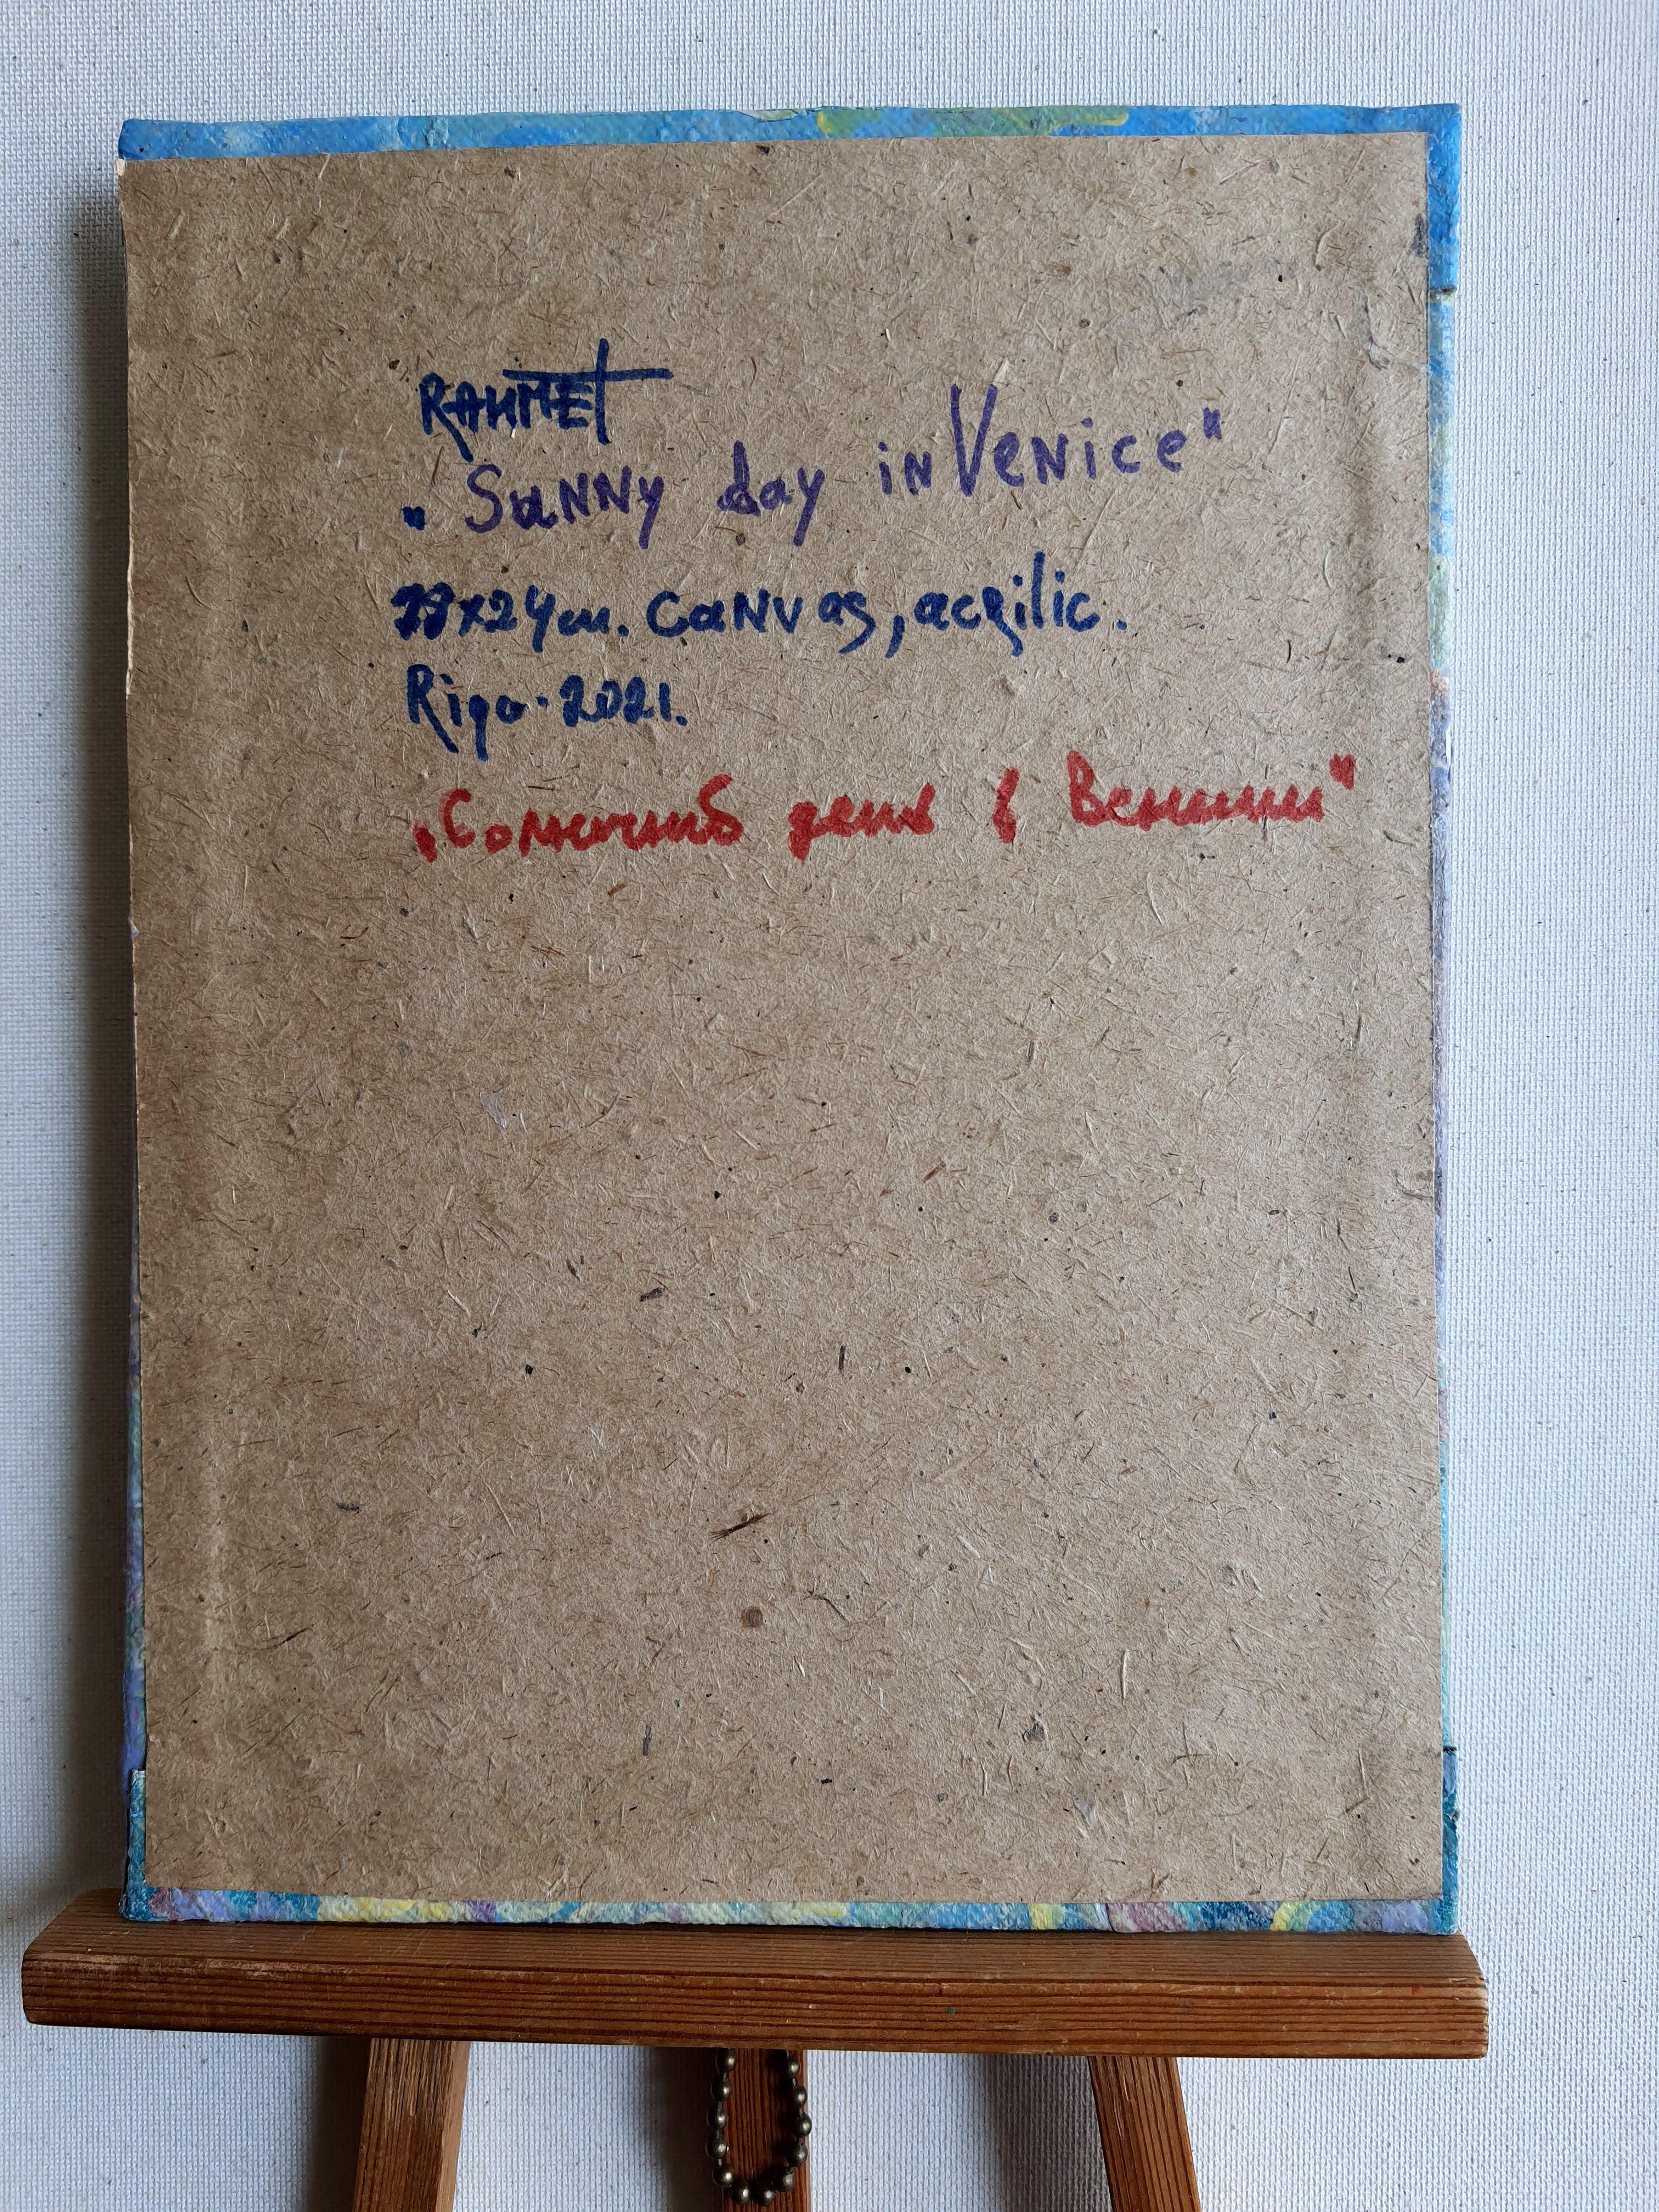 RAHMET
„Sunny day in Venice"
x24cm. Canvas, acrilic.
Riga. 2021.
„Солнечный день в Венеции"